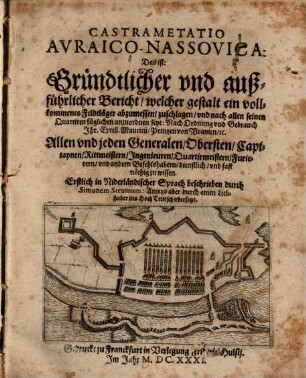 CASTRAMETATIO
AVRAICO-NASSOVICA:
Das ist:
Gründtlicher vnd auß-
führlicher Bericht / welcher gestalt ein voll-
kommenes Feldtläger abzumessen / zuschlagen / vnd nach allen seinen
Quartiren füglichen anzuordnen seye: Nach Ordnung vnd Gebrauch
Ihr. Excell. Mauritii / Printzen von Vranien / ꝛc.
Allen vnd jeden Generalen / Obersten / Capi-
taynen / Rittmeistern / Ingenieuren / Quartirmeistern / Furie-
rern / vnd andern Befehlshabern / dienstlich / vnd fast
nöhtig zu wissen.
Erstlich in Niderländischer Sprach beschrieben durch
Simonem Stevinum: Anjetzo aber durch einen Lieb-
haber ins Hoch Teutsch vbersetzt.
Gedruckt zu Franckfurt in Verlegung Hulsij.
Im Jahr M. DC. XXXI.